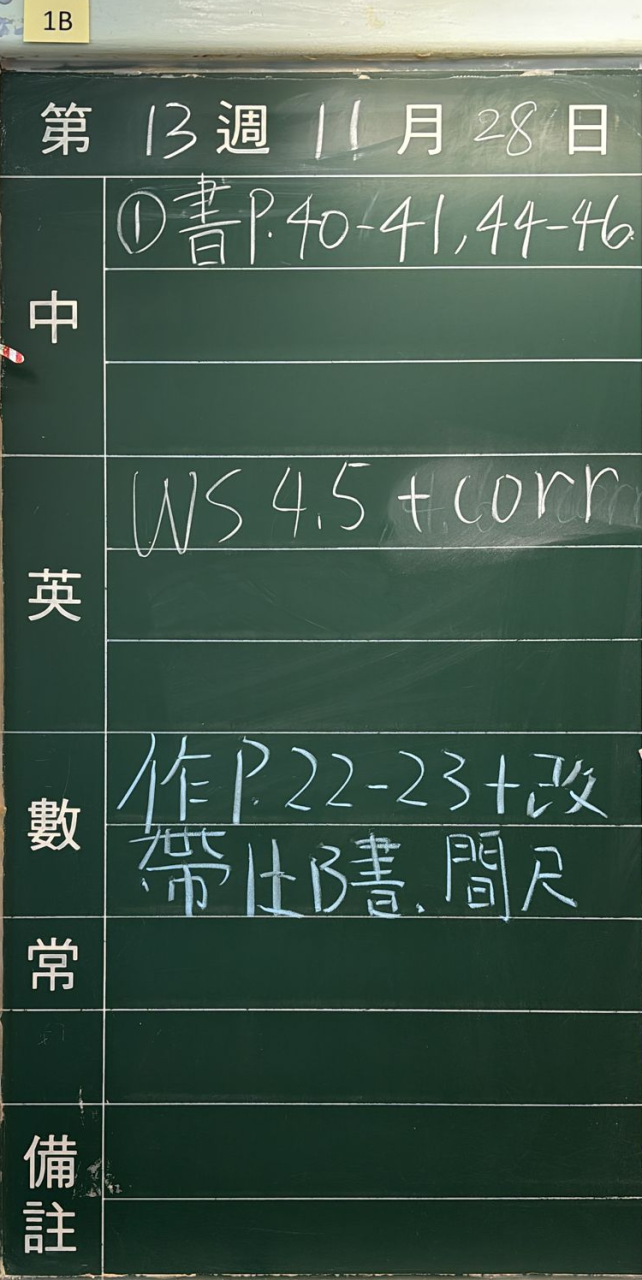 1B
第 13 週 11 月 28 日
中
①書P.40-41,44-46
英
WS 4.5 +corr
數
作P.22-23+改
帶上B書、間尺
常
備註